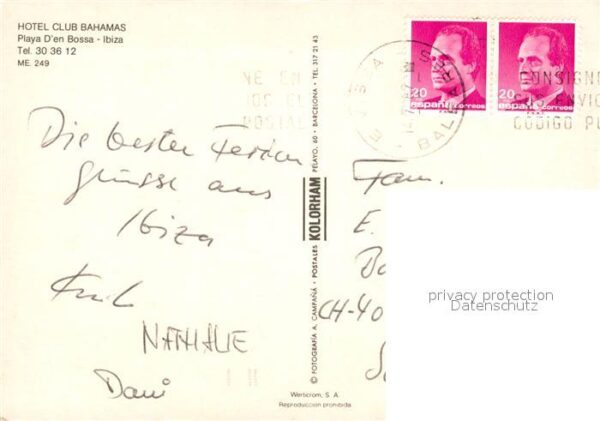 HOTEL CLUB BAHAMAS
Playa D'en Bossa - Ibiza
Tel. 30 36 12
ME. 249
Die besten Ferien
grüsse aus
Ibiza
NATHALIE
Dani
© FOTOGRAFIA A. CAMPAÑA - POSTALES KOLORHAM PELAYO, 60 - BARCELONA - TEL. 317 21 43
Werticrom, S. A.
Reproducción prohibida
20
españa correos
20
españa correos
BALEARES
CONSIGNE
CODIGO
Fam.
E.
CH-40
privacy protection
Datenschutz